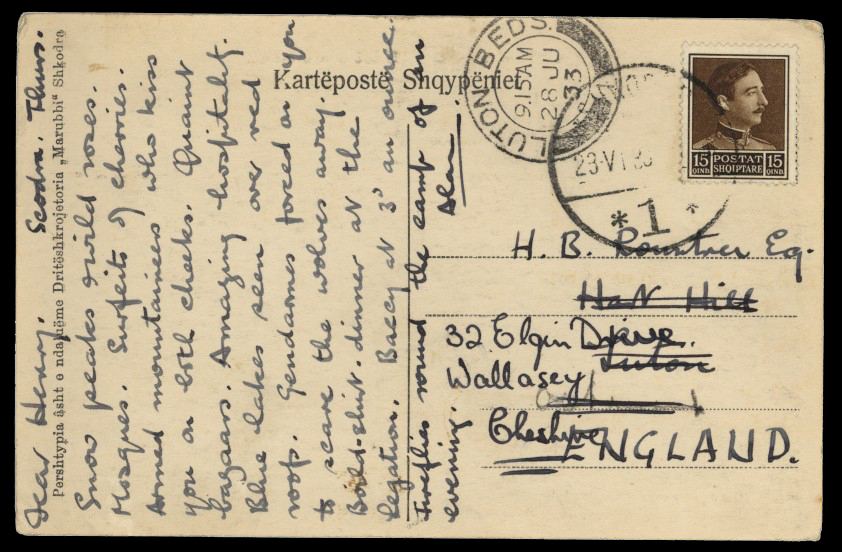 Dear Henry. Scodra. Thurs.
Snow peaks & wild roses.
Mosques. Surfeits of cherries.
Armed mountaineers who kiss
you on both cheeks. Quaint
bazaars. Amazing hospitality.
Blue lakes seen over red
roofs. Gendarmes forced on you
to scare the wolves away.
Boiled-shirt-dinner at the
legation. Baccy at 3d an ounce.
Fireflies round the camp of an
evening. Alan.
Pershtypia âsht e ndalueme Dritëshkrojetoria „Marubbi“ Shkodra
Kartëpostë Shqypëniet
LUTON BEDS.
9.15 AM
28 JU
33
23·VI 33
* 1 *
15 POSTAT 15
QIND. SHQIPTARE QIND.
H. B. Rowntree Esq.
Hart Hill
32 Elgin Drive.
Luton
Wallasey
Cheshire
ENGLAND.